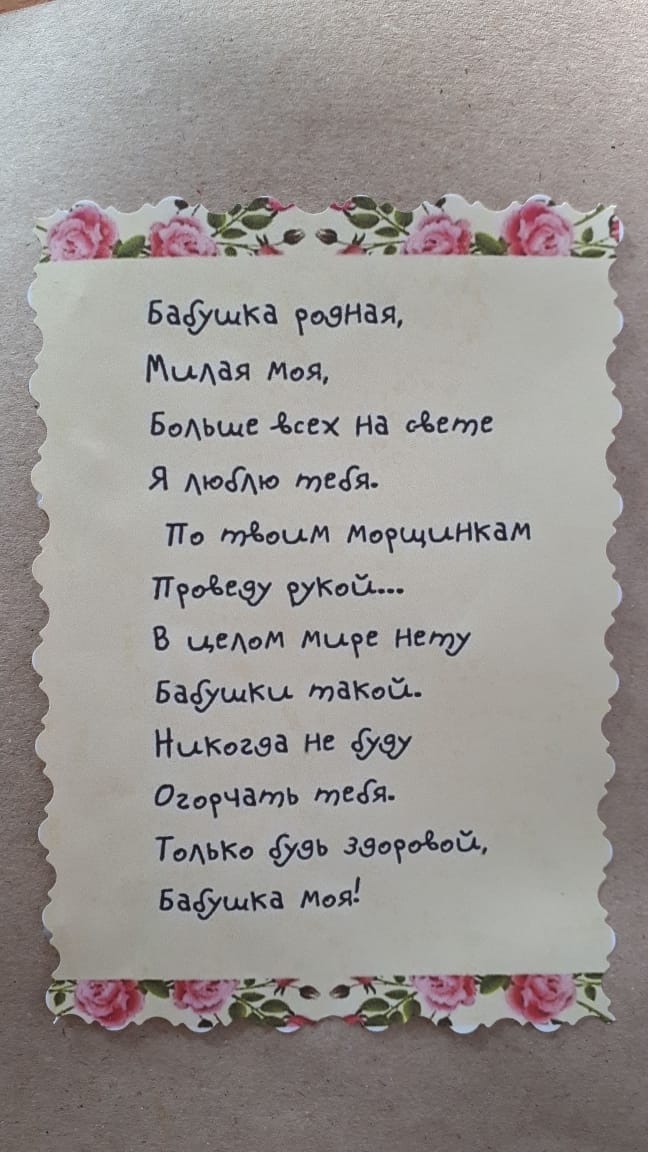 Бабушка родная,
Милая моя,
Больше всех на свете
Я люблю тебя.
По твоим морщинкам
Проведу рукой...
В целом мире нету
Бабушки такой.
Никогда не буду
Огорчать тебя.
Только будь здоровой,
Бабушка моя!